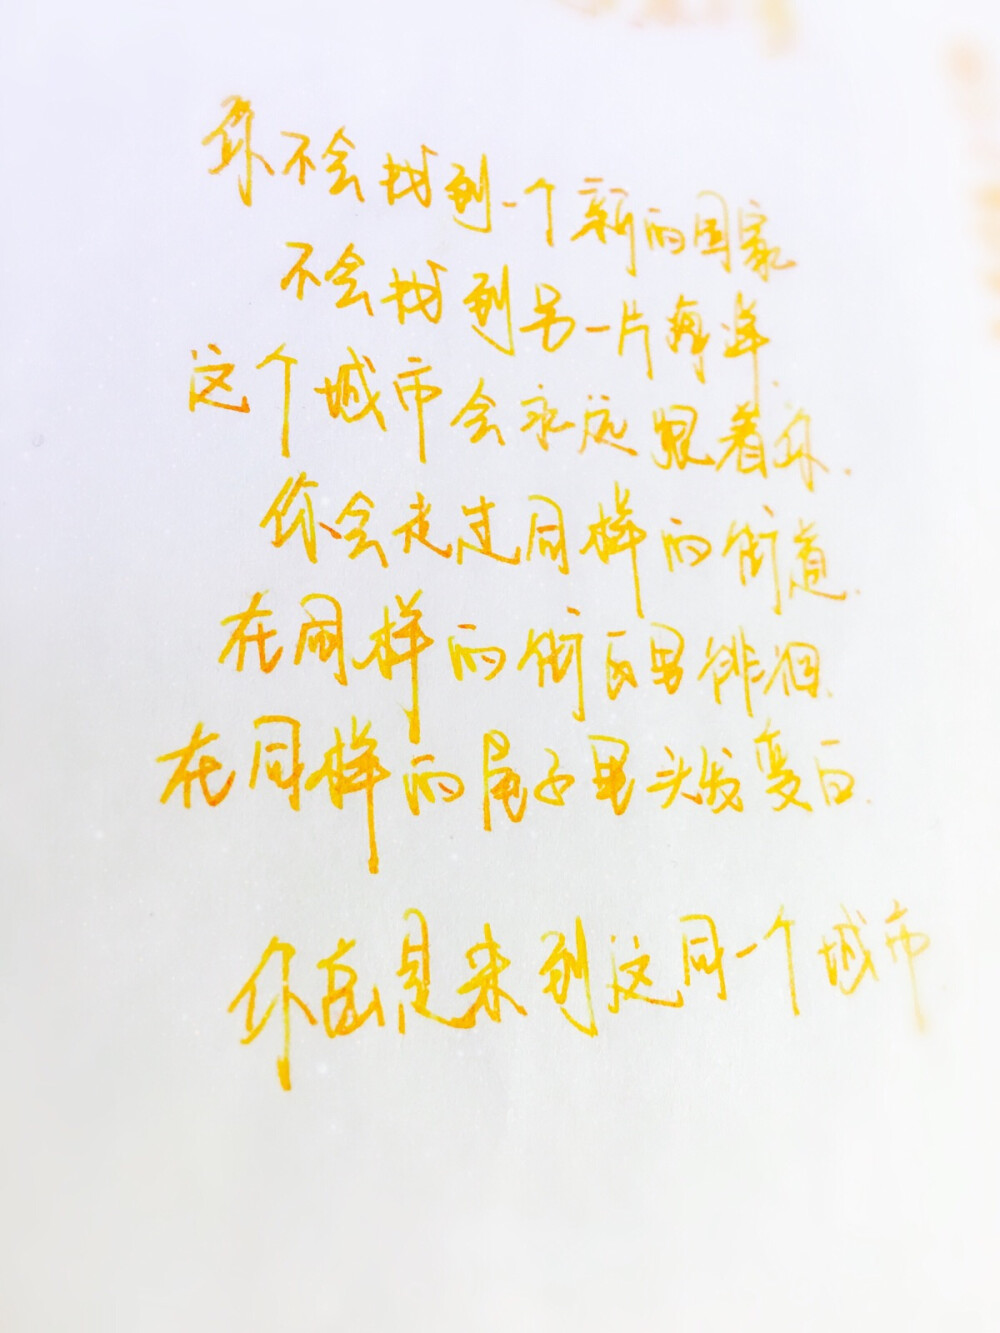 你不会找到一个新的国家
不会找到另一片海洋.
这个城市会永远跟着你.
你会走过同样的街道.
在同样的街区里徘徊.
在同样的屋子里头发变白.
你总是来到这同一个城市